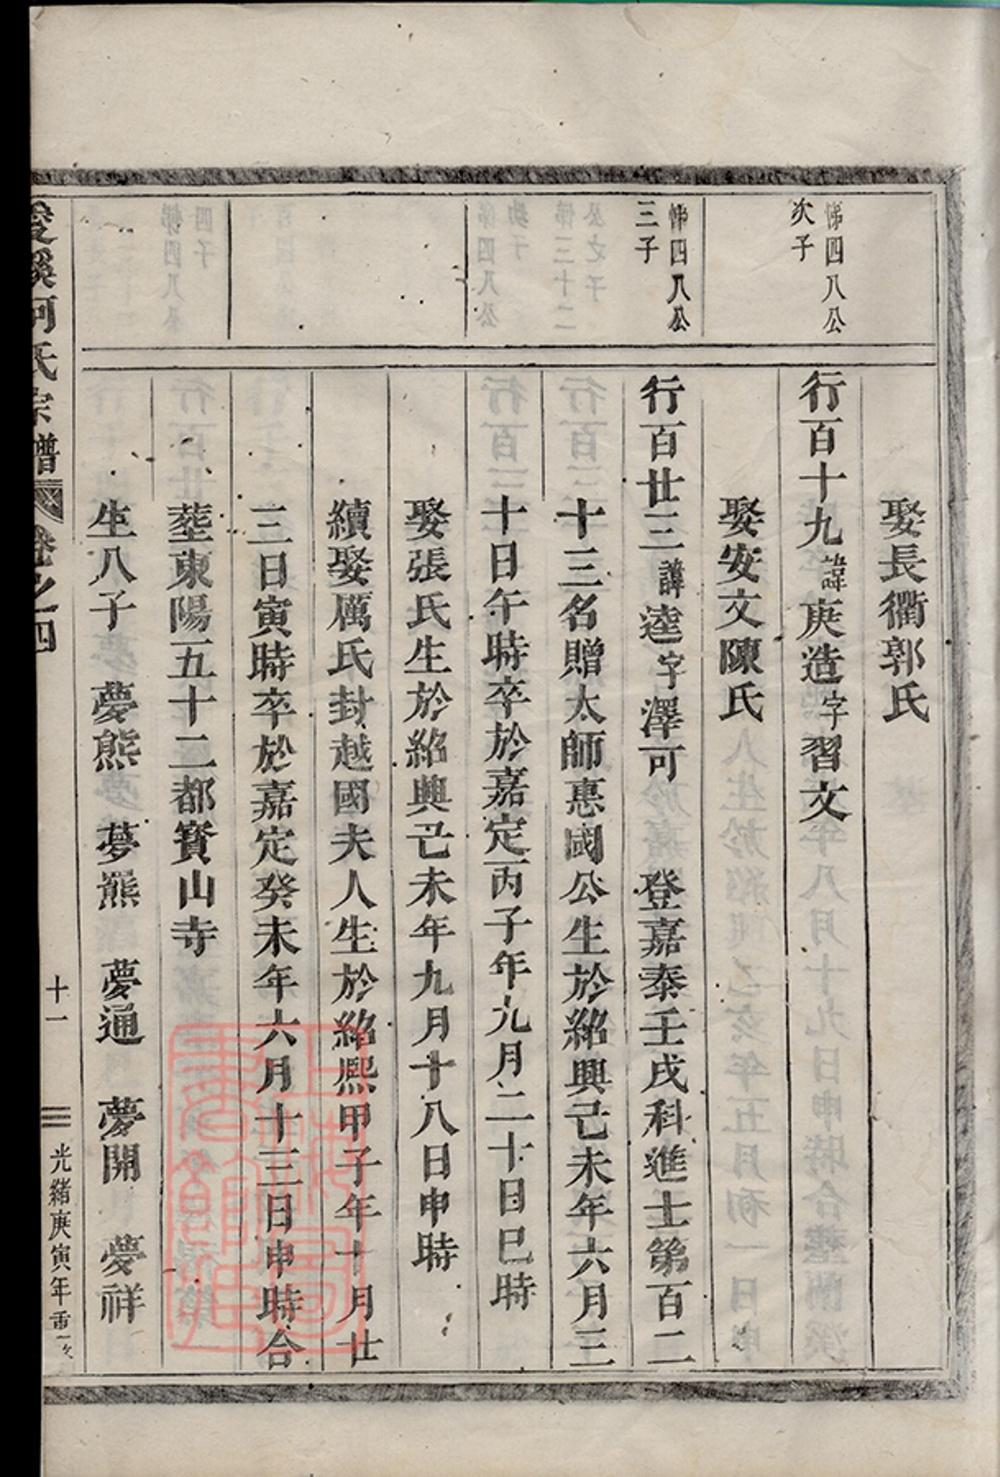 娶長衢郭氏
悌四八公
次子
行百十九諱庚造字習文
娶安文陳氏
悌四八公
三子
行百廿三諱逵字澤可　登嘉泰壬戌科進士第百二
十三名贈太師惠國公生於紹興己未年六月三
十日午時卒於嘉定丙子年九月二十日巳時
娶張氏生於紹興己未年九月十八日申時
續娶厲氏封越國夫人生於紹熙甲子年十月廿
三日寅時卒於嘉定癸未年六月十三日申時合
塟東陽五十二都寳山寺
生八子　夢熊　夢羆　夢通　夢開　夢祥
溪何氏宗譜　卷之四　十一　光緒庚寅年重